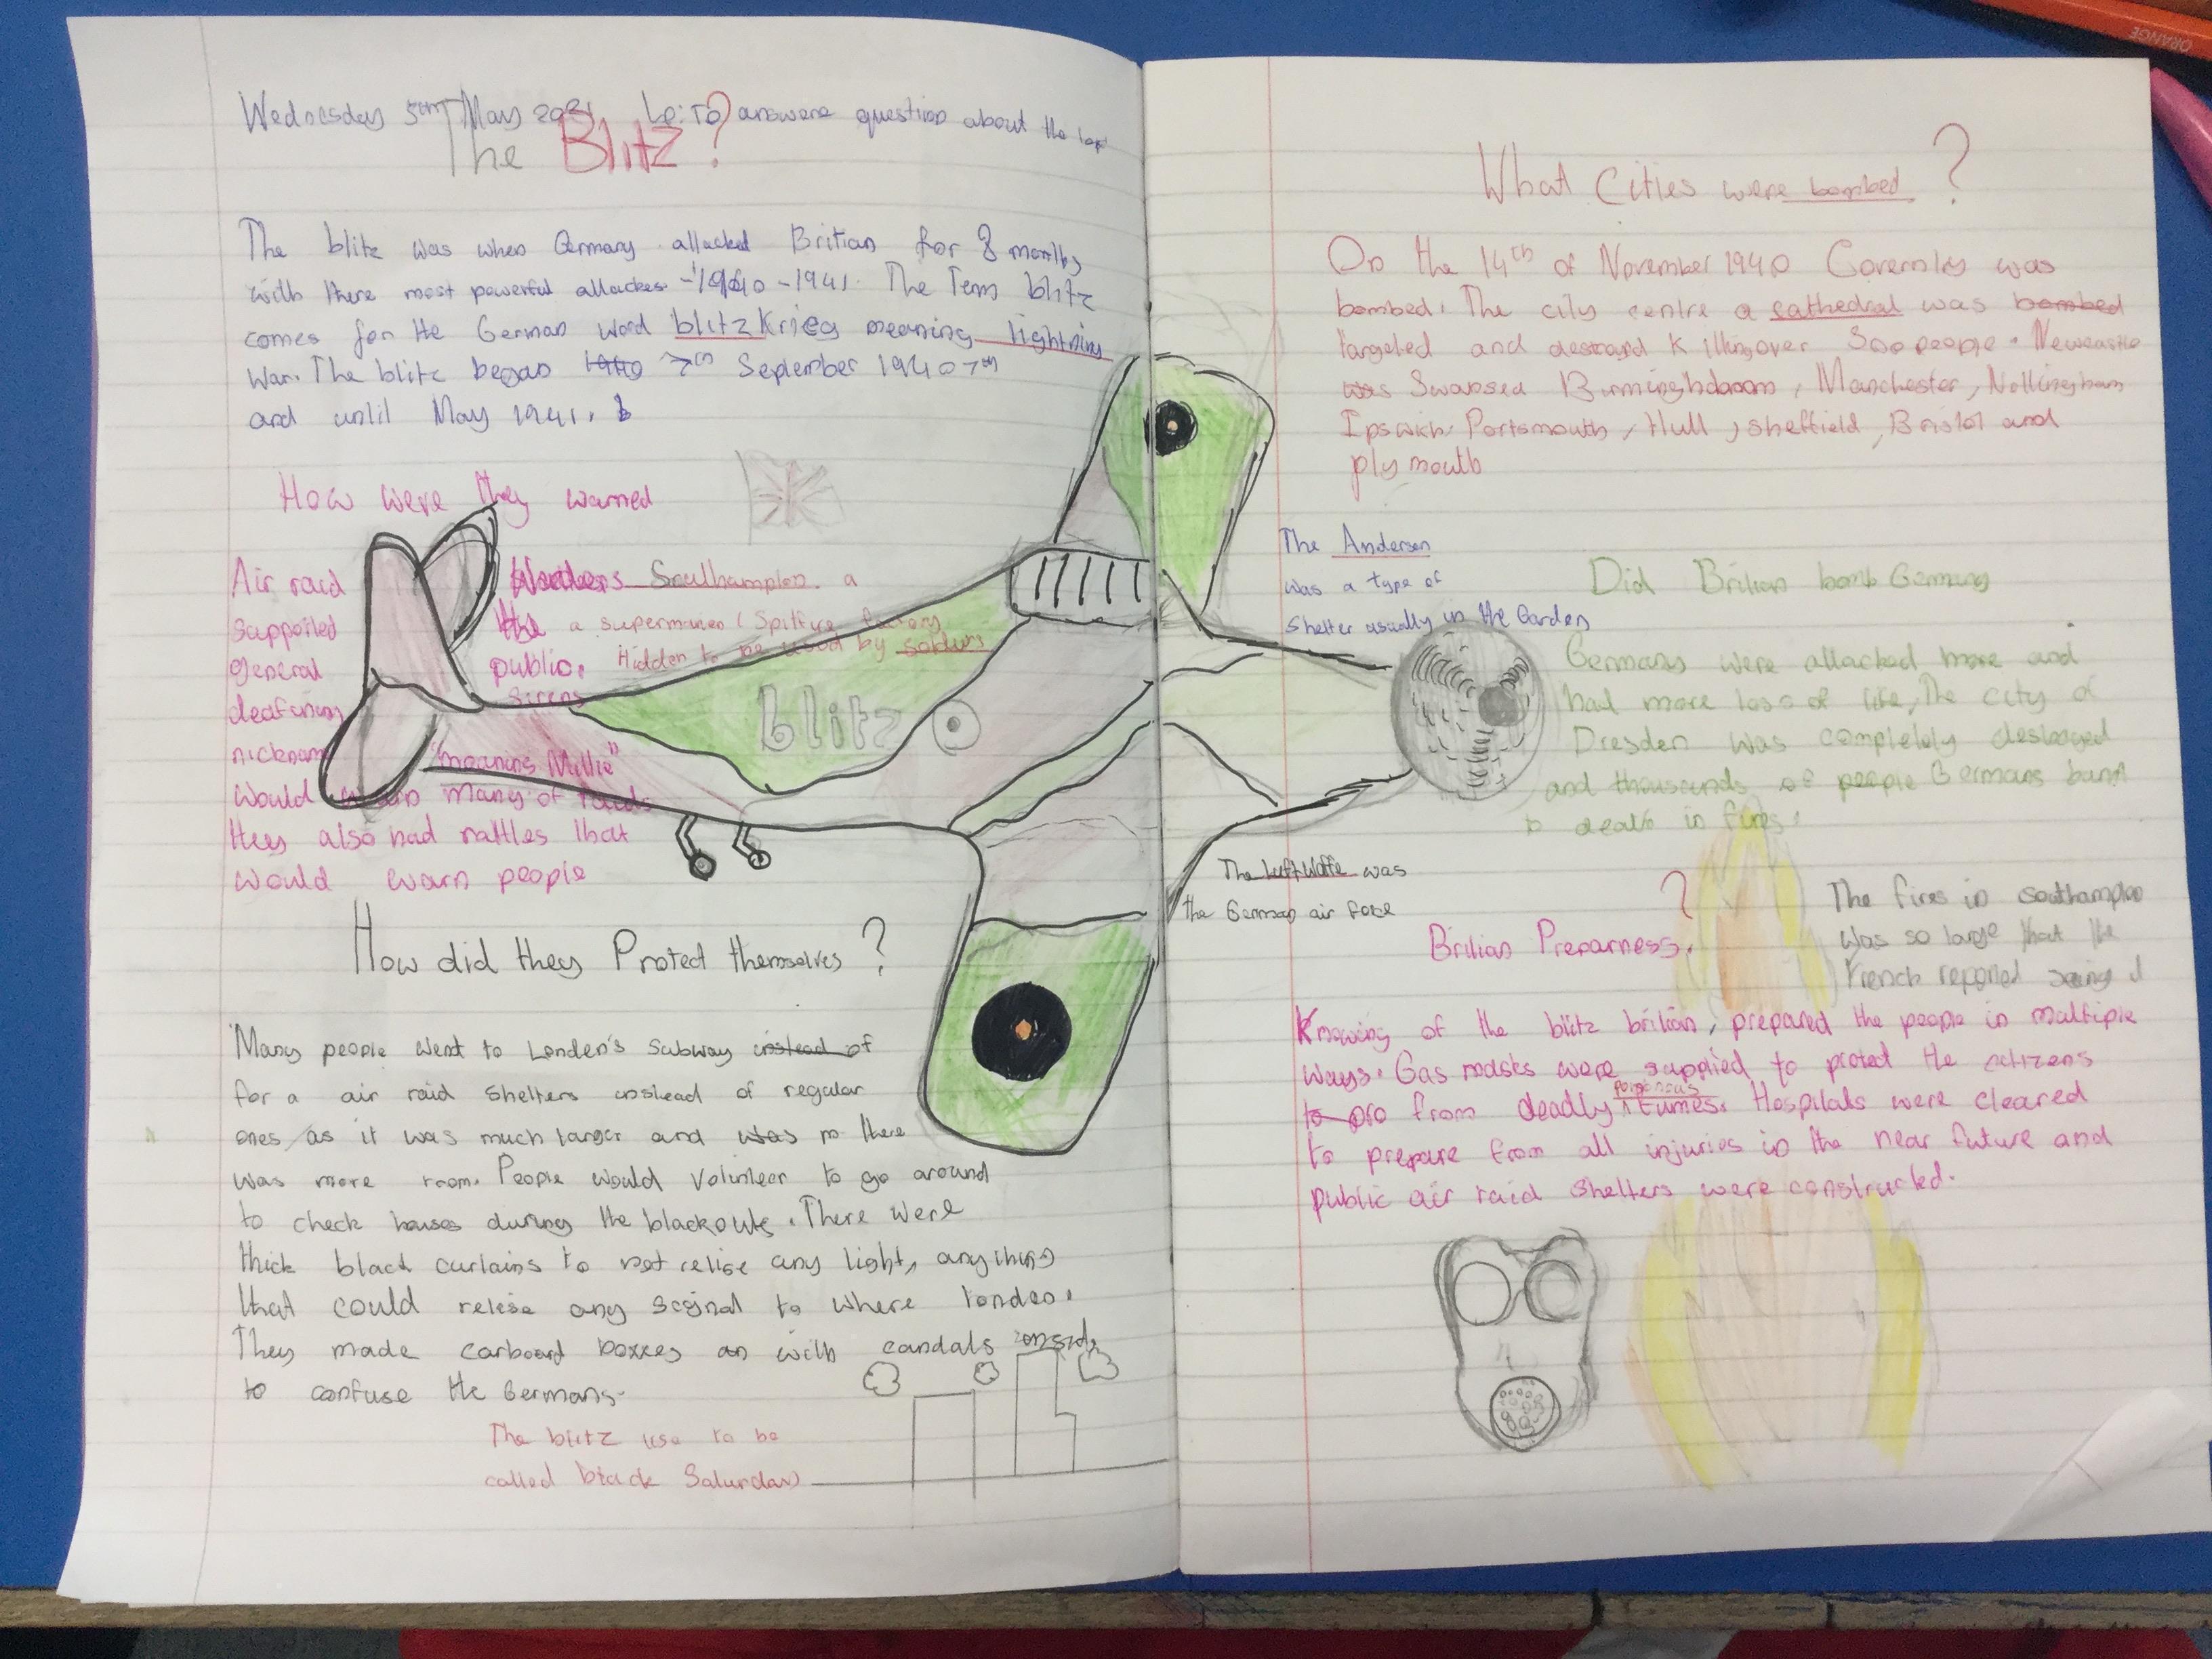 Wednesday 5th May 2021 Lo: To answere question about the
The Blitz?
The blitz was when Germany attacked Britian for 8 months
with there most powerful attackes - 1940 - 1941. The Term blitz
comes for the German word blitzKrieg meaning lightning
War. The blitz began 1940 7th September 1940 7th
and until May 1941.
How were they warned
Air raid Wardens
supported the
general public.
deafining sirens
nicknam "meaning Millie"
would warn many of raids
they also had rattles that
would warn people
Southampton a
a supermarien (Spitfire factory
Hidden to be used by solders
blitz
How did they Protect themselves?
Many people went to London's Subway instead of
for a air raid shelters instead of regular
ones, as it was much larger and was there
was more room. People would Volunteer to go around
to check houses during the blackouts. There were
thick black curtains to not relise any light, anything
that could relese any scginal to where london.
They made carboard boxxes an with candals inside
to confuse the Germans.
The blitz use to be
called black Saturday
What Cities were bombed?
On the 14th of November 1940 Coverntry was
bombed. The city centre a cathedral was bombed
targeted and killing over 500 people. Newcastle
was Swansea Birmingham, Manchester, Nottingham
Ipswich Portsmouth, Hull, sheffield, Bristol and
plymouth
The Andersen
was a type of
shelter usually in the Garden
Did Britian bomb Germany
Germany were attacked more and
had more loss of life, The city of
Dresden was completely destroyed
and thousands of people Germans burnt
to death in fires.
The LuftWaffe was
the German air force
The fires in Southampton
was so large that the
French reported seing
Britian Preparness. ?
Knowing of the blitz britian, prepared the people in multiple
ways. Gas masks were supplied to protect the citizens
to pro from deadly poisonous fumes. Hospitals were cleared
to prepare from all injuries in the near future and
public air raid shelters were constructed.